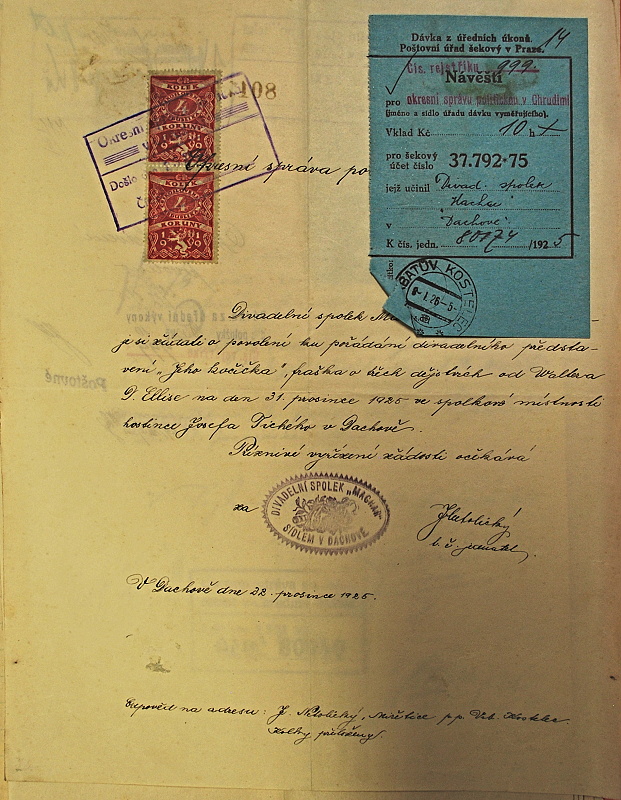 Dávka z úředních úkonů.
Poštovní úřad šekový v Praze.
14
Čís. rejstříku 999.
Návěští
pro okresní správu politickou v Chrudimi
(jméno a sídlo úřadu dávku vyměřujícího).
Vklad Kč 10 h
pro šekový
účet číslo 37.792·75
jejž učinil Divad. spolek
v Dachově
K čís. jedn. 80174 /1925
108
KOLEK
4
KORUNY
1919
KOLEK
4
KORUNY
1919
Okresní
Došlo
Okresní správa po
BATŮV KOSTELEC
Divadelní spolek Ma
je si žádati o povolení ku pořádání divadelního předsta-
vení „Jeho kočička", fraška o třech dějstvích od Waltra
D. Ellise na den 31. prosince 1925 ve spolkové místnosti
hostince Josefa Tichého v Dachově.
Příznivé vyřízení žádosti očekává
za
DIVADELNÍ SPOLEK „MÁCHAN"
SÍDLEM V DACHOVĚ
J. Netolický
t. č. jednatel.
V Dachově dne 22. prosince 1925.
Odpověď na adresu: J. Netolický, Miřetice p.p. Vrb. Kostelec
Kolky přiloženy.